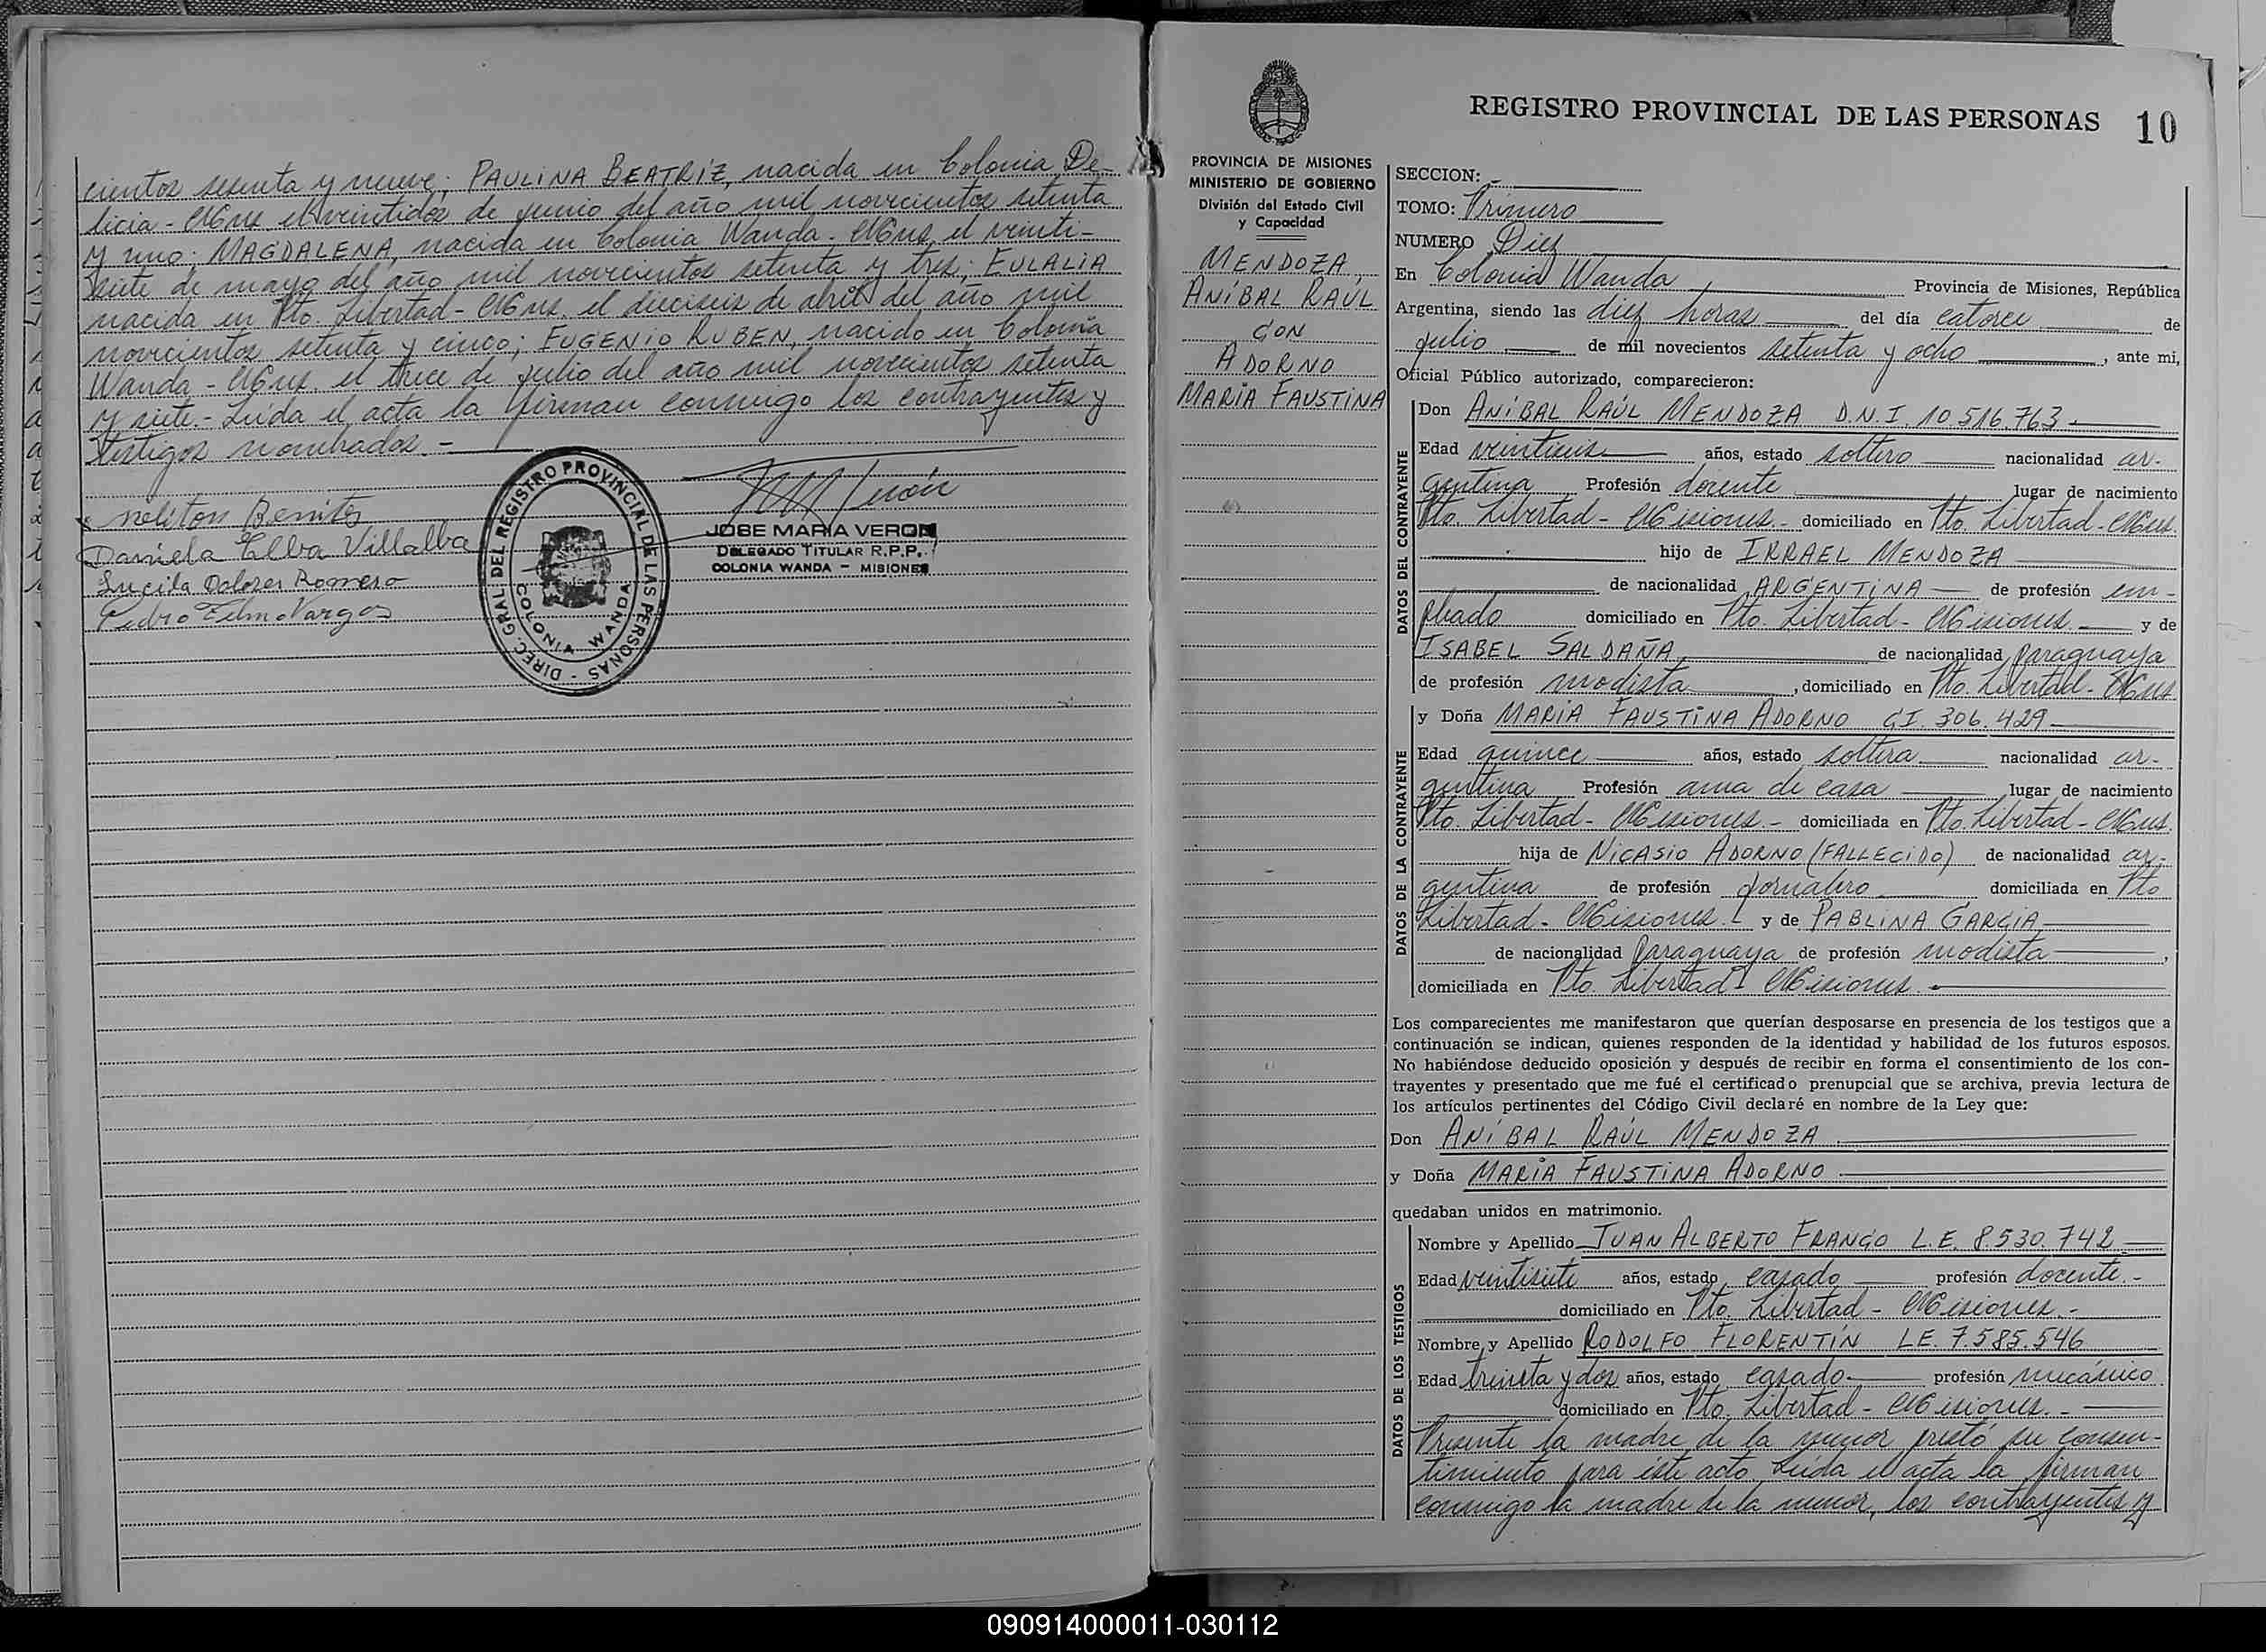 cientos sesenta y nueve; PAULINA BEATRIZ, nacida en Colonia De-
licia - Mnes. el veintidós de junio del año mil novecientos setenta
y uno; MAGDALENA, nacida en Colonia Wanda - Mnes. el veinti-
siete de mayo del año mil novecientos setenta y tres; EULALIA
nacida en Pto. Libertad - Mnes. el dieciseis de abril del año mil
novecientos setenta y cinco; EUGENIO RUBEN, nacido en Colonia
Wanda - Mnes. el trece de julio del año mil novecientos setenta
y siete.- Leída el acta la firman conmigo los contrayentes y
testigos nombrados.-
meliton Benitez
Daniela Elba Villalba
Lucila Dolores Romero
Pedro Telmo Vargas
DIREC. GRAL. DEL REGISTRO PROVINCIAL DE LAS PERSONAS -
COLONIA WANDA
JOSE MARIA VERON
DELEGADO TITULAR R.P.P.
COLONIA WANDA - MISIONES
REGISTRO PROVINCIAL DE LAS PERSONAS 10
PROVINCIA DE MISIONES
MINISTERIO DE GOBIERNO
División del Estado Civil
y Capacidad
MENDOZA,
ANÍBAL RAÚL
CON
ADORNO
MARÍA FAUSTINA
SECCION: -
TOMO: Primero
NUMERO Diez
En Colonia Wanda, Provincia de Misiones, República
Argentina, siendo las diez horas del día catorce de
julio de mil novecientos setenta y ocho, ante mi,
Oficial Público autorizado, comparecieron:
DATOS DEL CONTRAYENTE
Don ANÍBAL RAÚL MENDOZA D.N.I. 10.516.763
Edad años, estado soltero nacionalidad ar-
gentina Profesión docente lugar de nacimiento
Pto. Libertad - Misiones.- domiciliado en Pto. Libertad - Mnes.
hijo de IRRAEL MENDOZA
de nacionalidad ARGENTINA de profesión em-
pleado domiciliado en Pto. Libertad - Misiones.- y de
ISABEL SALDAÑA, de nacionalidad paraguaya
de profesión modista, domiciliado en Pto. Libertad - Mnes.
DATOS DE LA CONTRAYENTE
y Doña MARÍA FAUSTINA ADORNO CI. 306.429
Edad quince años, estado soltera nacionalidad ar-
gentina Profesión ama de casa lugar de nacimiento
Pto. Libertad - Misiones.- domiciliada en Pto. Libertad - Mnes.
hija de NICASIO ADORNO (FALLECIDO) de nacionalidad ar-
gentina de profesión jornalero domiciliada en Pto
Libertad - Misiones.- y de PABLINA GARCIA
de nacionalidad paraguaya de profesión modista,
domiciliada en Pto. Libertad - Misiones.-
Los comparecientes me manifestaron que querían desposarse en presencia de los testigos que a
continuación se indican, quienes responden de la identidad y habilidad de los futuros esposos.
No habiéndose deducido oposición y después de recibir en forma el consentimiento de los con-
trayentes y presentado que me fué el certificado prenupcial que se archiva, previa lectura de
los artículos pertinentes del Código Civil declaré en nombre de la Ley que:
Don ANÍBAL RAÚL MENDOZA
y Doña MARÍA FAUSTINA ADORNO
quedaban unidos en matrimonio.
DATOS DE LOS TESTIGOS
Nombre y Apellido JUAN ALBERTO FRANCO L.E. 8.530.742
Edad veintisiete años, estado casado profesión docente.-
domiciliado en Pto. Libertad - Misiones.-
Nombre y Apellido RODOLFO FLORENTÍN LE. 7.585.546
Edad treinta y dos años, estado casado profesión mecánico
domiciliado en Pto. Libertad - Misiones.-
Presente la madre de la menor prestó su consen-
timiento para éste acto. Leída el acta la firman
conmigo la madre de la menor, los contrayentes y
090914000011-030112